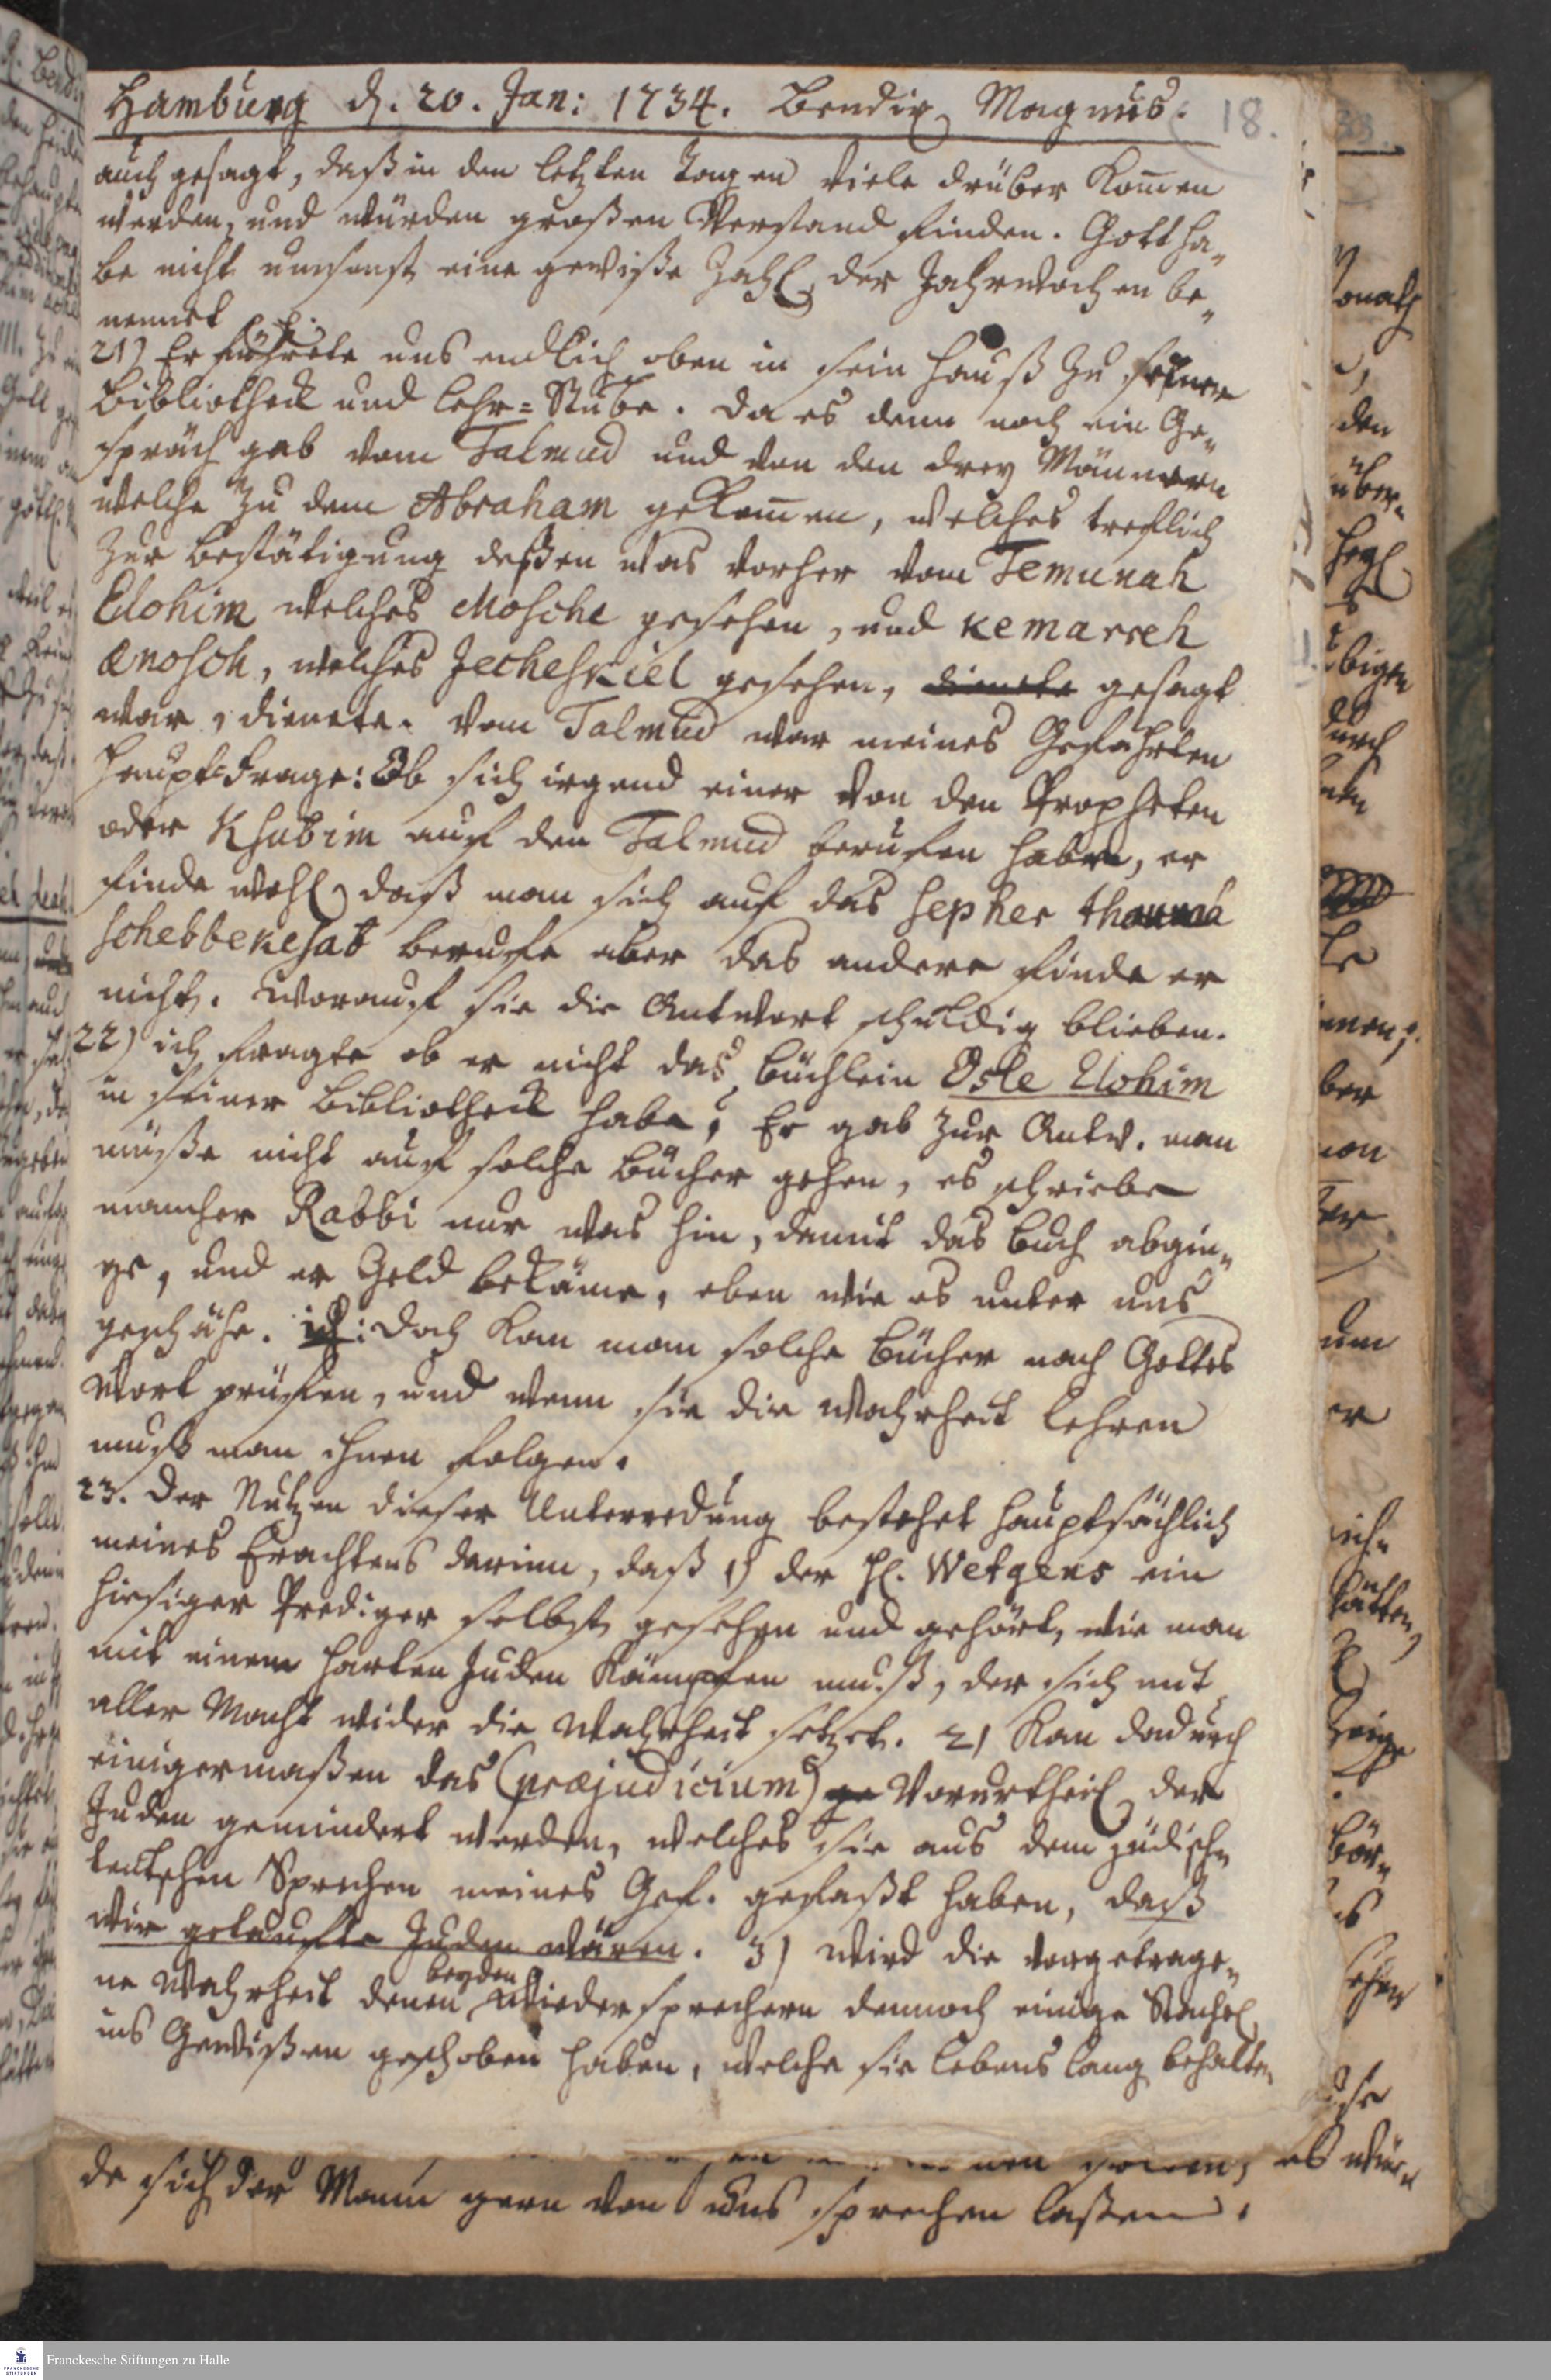 Hamburg d. 20. Jan: 1734. Bendix Magnus.
18.
auch gesagt, daß in den letzten Tagen viele drüber kom̅en
werden, und würden großen Verstand finden. Gott ha-
be nicht umsonst eine gewiße Zahl der Jahrwochen be-
nennet
21) Er führete uns endlich oben in sein Hauß zu seiner
Bibliotheck und Lehr-Stube. Da es denn noch ein Ge-
spräch gab vom Talmud und von den drey Männern
welche zu dem Abraham gekom̅en, welches treflich
zur Bestätigung deßen was vorher vom Temunah
Elohim welches Mosche gesehen, und Kemarreh
ænosch, welches Jecheskiel gesehen, dienete gesagt
war, dienete. Vom Talmud war meines Gefährten
Haupt-Frage: Ob sich irgend einer von den Propheten
oder Ksubim auf den Talmud beruffen habe, er
finde wohl daß man sich auf das Sepher
schebbekesab beruffe aber das andere finde er
nicht. Worauf sie die Antwort schuldig blieben.
22) ich fragte ob er nicht das Büchlein Osle Elohim
in seiner Bibliotheck habe? Er gab zur Antw. man
müße nicht auf solche Bücher gehen, es schriebe
mancher Rabbi nur was hin, damit das Buch abgin-
ge, und er Geld bekäme, eben wie es unter uns
geschähe. ich: Doch kan man solche Bücher nach Gottes
Wort prüfen, und wenn sie die Wahrheit lehren
muß man ihnen folgen.
23. Der Nutzen dieser Unterredung bestehet hauptsächlich
meines Erachtens darinn, daß 1) der H. Wetgens ein
hiesiger Prediger selbst gesehen und gehört, wie man
mit einem harten Juden kämpfen muß, der sich mit
aller Macht wider die Wahrheit setzet. 2) kan dadurch
einigermaßen das (præjudicium) ge Vorurtheil der
Juden gemindert werden, welches sie aus dem jüdisch
teutschen Sprechen meines Gef. gefaßt haben, daß
wir getaufte Juden wären. 3) wird die vorgetrage-
ne Wahrheit denen beyden Wiedersprechern dennoch einige Stachel
ins Gewißen geschoben haben, welche sie lebens lang behalten
es wür-
de sich der Mann gern von uns sprechen laßen.
Franckesche Stiftungen zu Halle